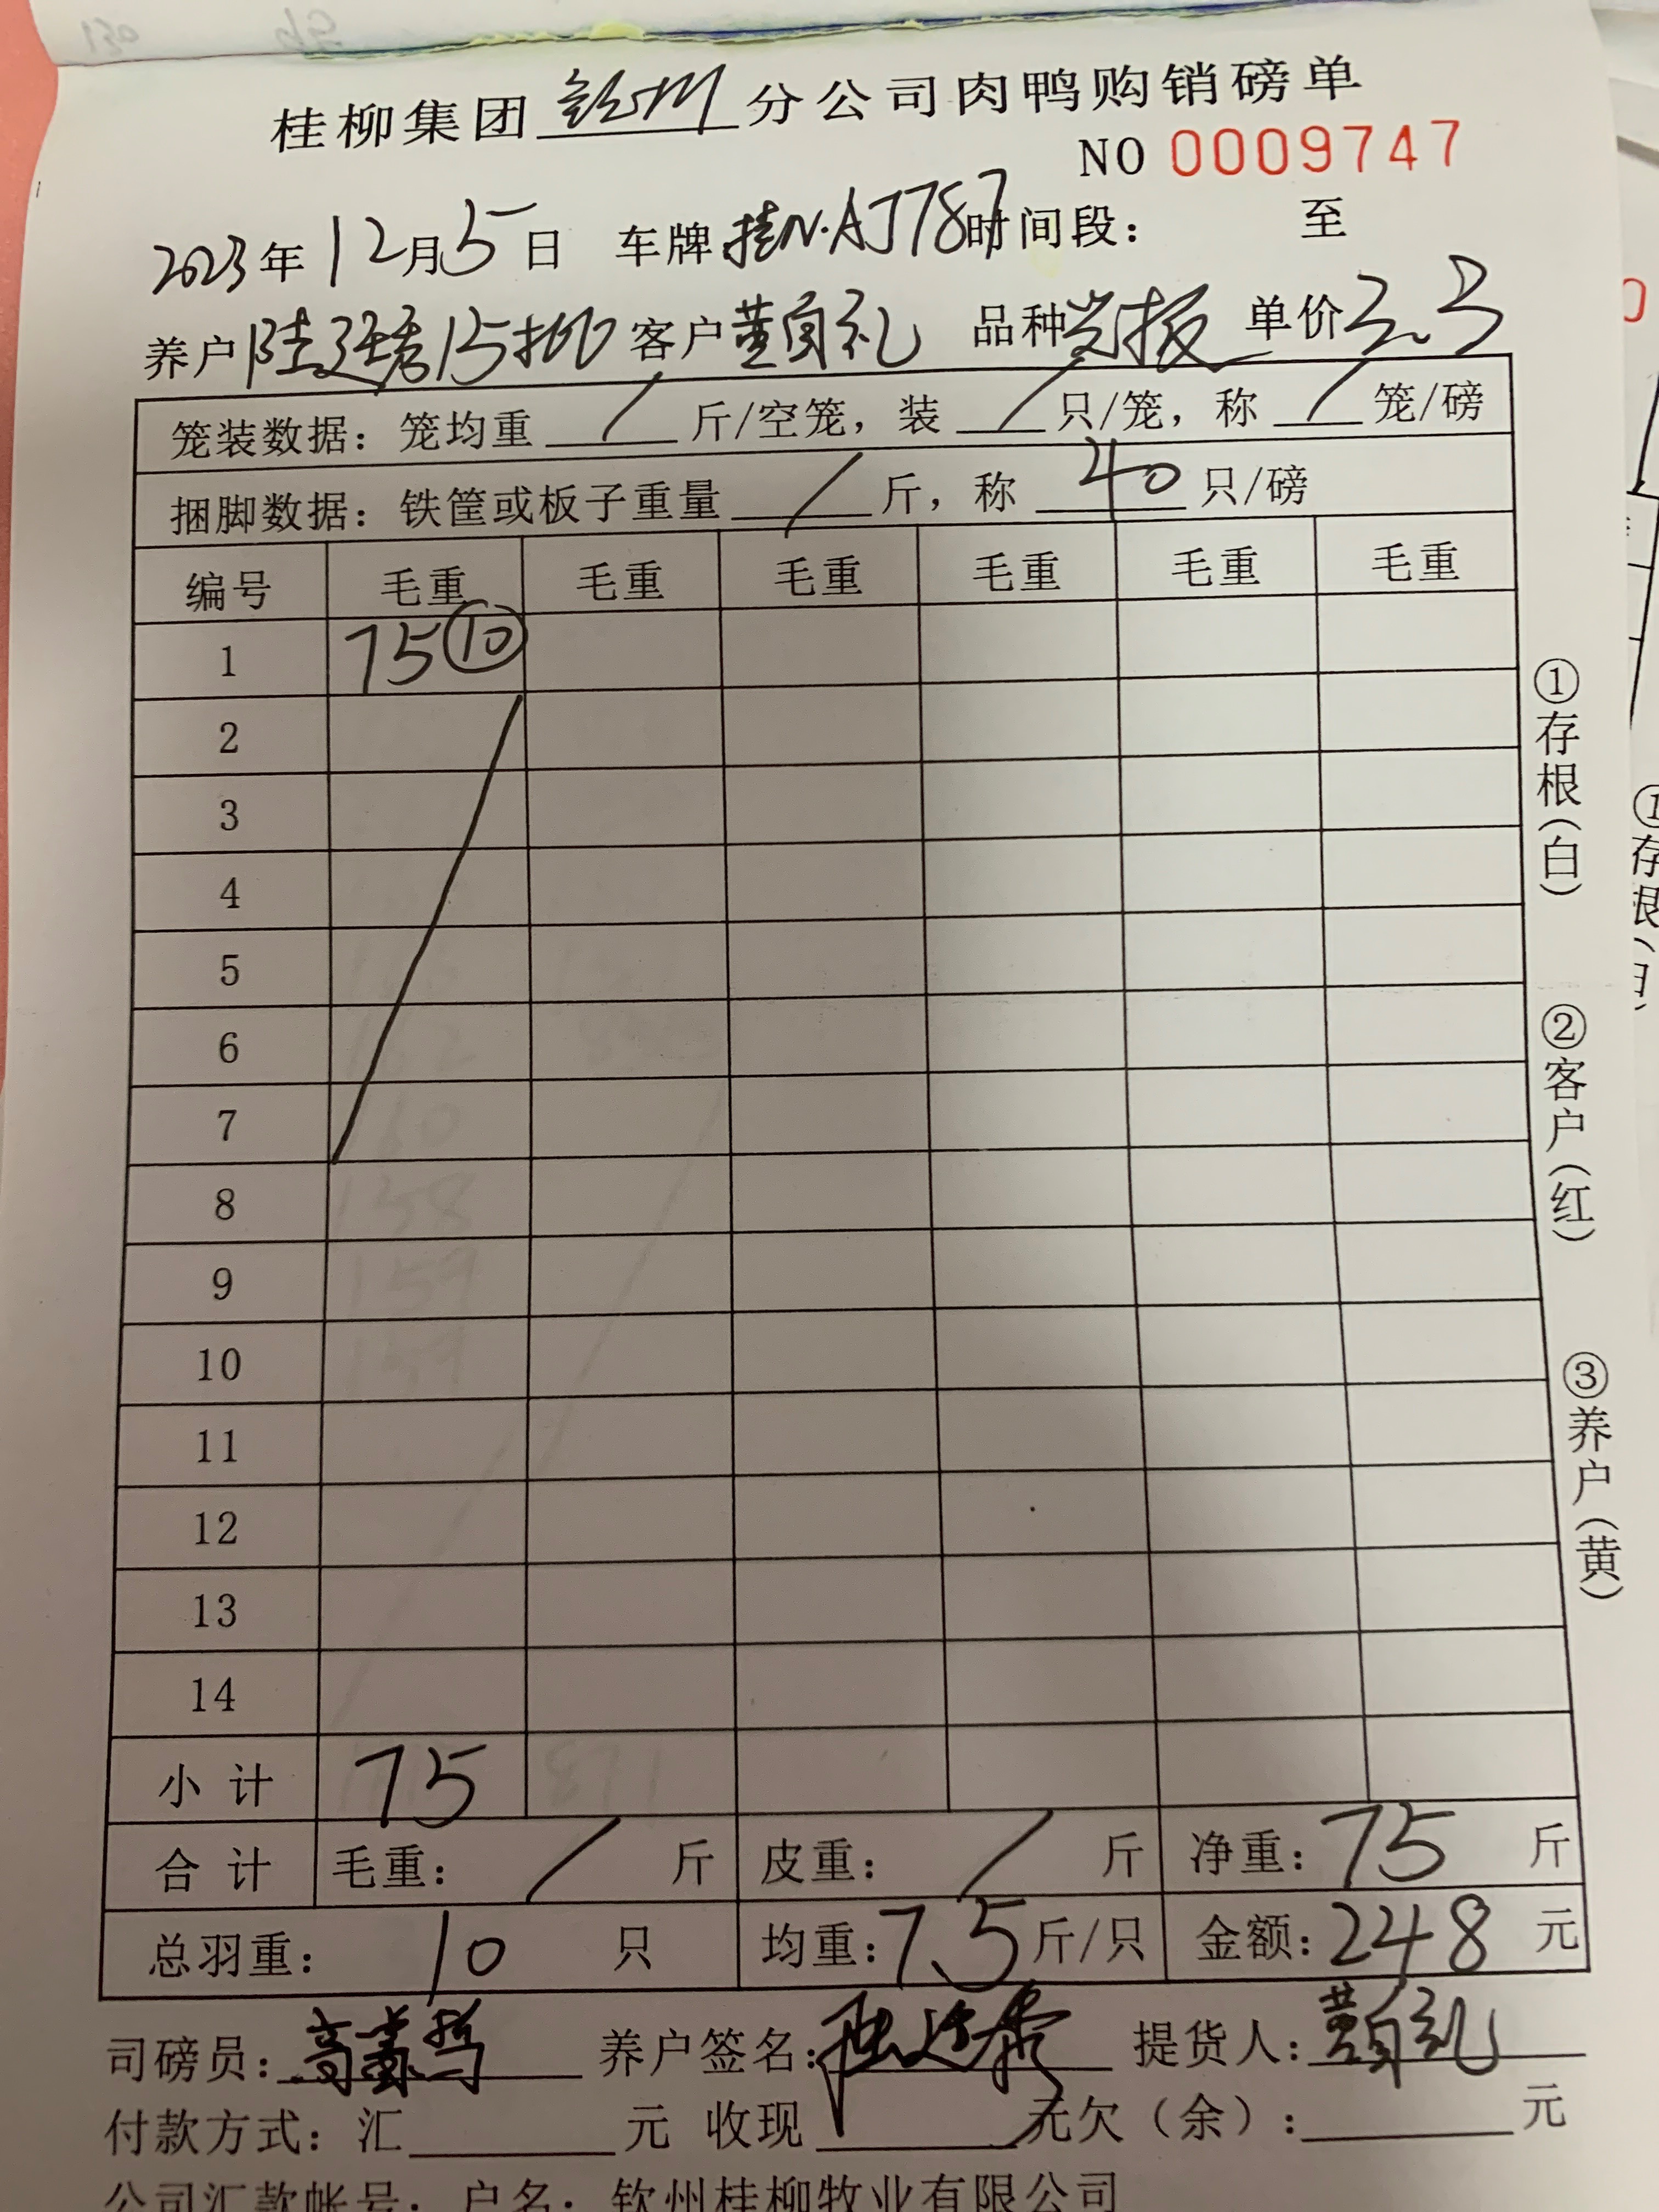 桂柳集团钦州分公司肉鸭购销磅单
NO 0009747
2023年12月5日 车牌桂N·AJ787时间段： 至
养户陆廷秀15批 客户黄自礼 品种 单价3.3
笼装数据：笼均重 / 斤/空笼，装 / 只/笼，称 / 笼/磅
捆脚数据：铁筐或板子重量 / 斤，称 40 只/磅
编号 毛重 毛重 毛重 毛重 毛重 毛重
1 75⑩
2
3
4
5
6
7
8
9
10
11
12
13
14
小计 75
合计 毛重： / 斤 皮重： / 斤 净重：75 斤
总羽重： 10 只 均重：7.5斤/只 金额：248 元
司磅员： 养户签名：陆廷秀 提货人：黄自礼
付款方式：汇 元 收现 元欠（余）： 元
公司汇款帐号：户名：钦州桂柳牧业有限公司
①存根（白）
②客户（红）
③养户（黄）